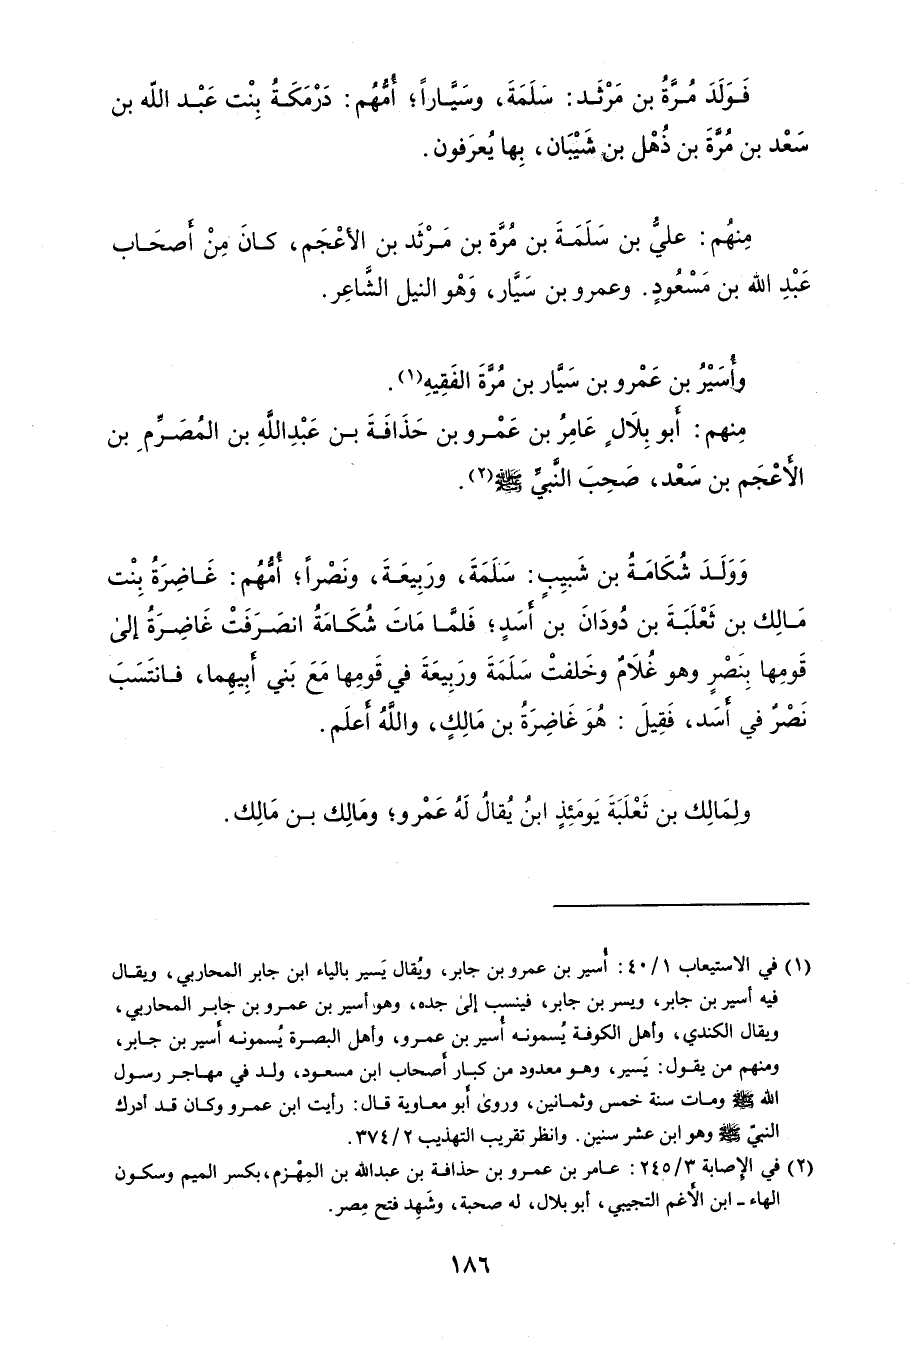 فَوَلَدَ مُرَّةُ بن مَرْثَد: سَلَمَةَ، وسَيَّاراً؛ أُمُّهُم: دَرْمَكَةُ بِنْت عَبْد اللّه بن
سَعْد بن مُرَّةَ بن ذُهْل بن شَيْبَان، بِها يُعرَفون.
مِنهُم: عليُّ بن سَلَمَةَ بن مُرَّة بن مَرْثَد بن الأعْجَم، كانَ مِنْ أَصحَاب
عَبْدِ اللّه بن مَسْعُودٍ. وعمرو بن سَيَّار، وَهْو النيل الشَّاعِر.
وأُسَيْرُ بن عَمْرو بن سَيَّار بن مُرَّةَ الفَقِيهِ(١).
مِنهم: أَبو بِلَالٍ عَامِرُ بن عَمْرو بن حَذَافَةَ بن عَبْدِاللَّهِ بن المُصَرِّمِ بن
الأَعْجَم بن سَعْد، صَحِبَ النَّبيِّ ﷺ(٢).
وَوَلَدَ شُكَامَةُ بن شَبيبٍ: سَلَمَةَ، ورَبِيعَةَ، ونَصْراً؛ أُمُّهُم: غَاضِرَةُ بِنْت
مَالِك بن ثَعْلَبَةَ بن دُودَانَ بن أَسَدٍ؛ فَلمَّا مَاتَ شُكَامَةُ انصَرَفَتْ غَاضِرَةُ إلىٰ
قَومِها بِنَصْرٍ وهو غُلَامٌ وخَلفتْ سَلَمَةَ ورَبِيعَةَ في قَومِها مَعَ بَني أَبيهِما، فانتَسَبَ
نَصْرٌ في أَسَد، فَقِيلَ : هُوَ غَاضِرَةُ بن مَالِكٍ، واللَّهُ أَعلَم.
ولِمَالِك بن ثَعْلَبَةَ يَومَئِذٍ ابنُ يُقالُ لَهُ عَمْرو؛ ومَالِك بن مَالِك.
(١) في الاستيعاب ٤٠/١: أُسير بن عمرو بن جابر، ويُقال يَسير بالياء ابن جابر المحاربي، ويقال
فيه أسير بن جابر، ويسر بن جابر، فينسب إلىٰ جده، وهو: أسير بن عمرو بن جابر المحاربي،
ويقال الكندي، وأهل الكوفة يُسمونه أُسير بن عمرو، وأهل البصرة يُسمونه أُسير بن جابر،
ومنهم من يقول: يَسير، وهو معدود من كبار أَصحاب ابن مسعود، ولد في مهاجر رسول
الله ﷺ ومات سنة خمس وثمانين، وروىٰ أَبو معاوية قال: رأيت ابن عمرو وكان قد أدرك
النبيّ ﷺ وهو ابن عشر سنين. وانظر تقريب التهذيب ٣٧٤/٢.
(٢) في الإصابة ٢٤٥/٣: عامر بن عمرو بن حذافة بن عبدالله بن المِهْزم، بكسر الميم وسكون
الهاء ـ ابن الأَغم التجيبي، أبو بلال، له صحبة، وشَهِد فتح مِصر.
١٨٦